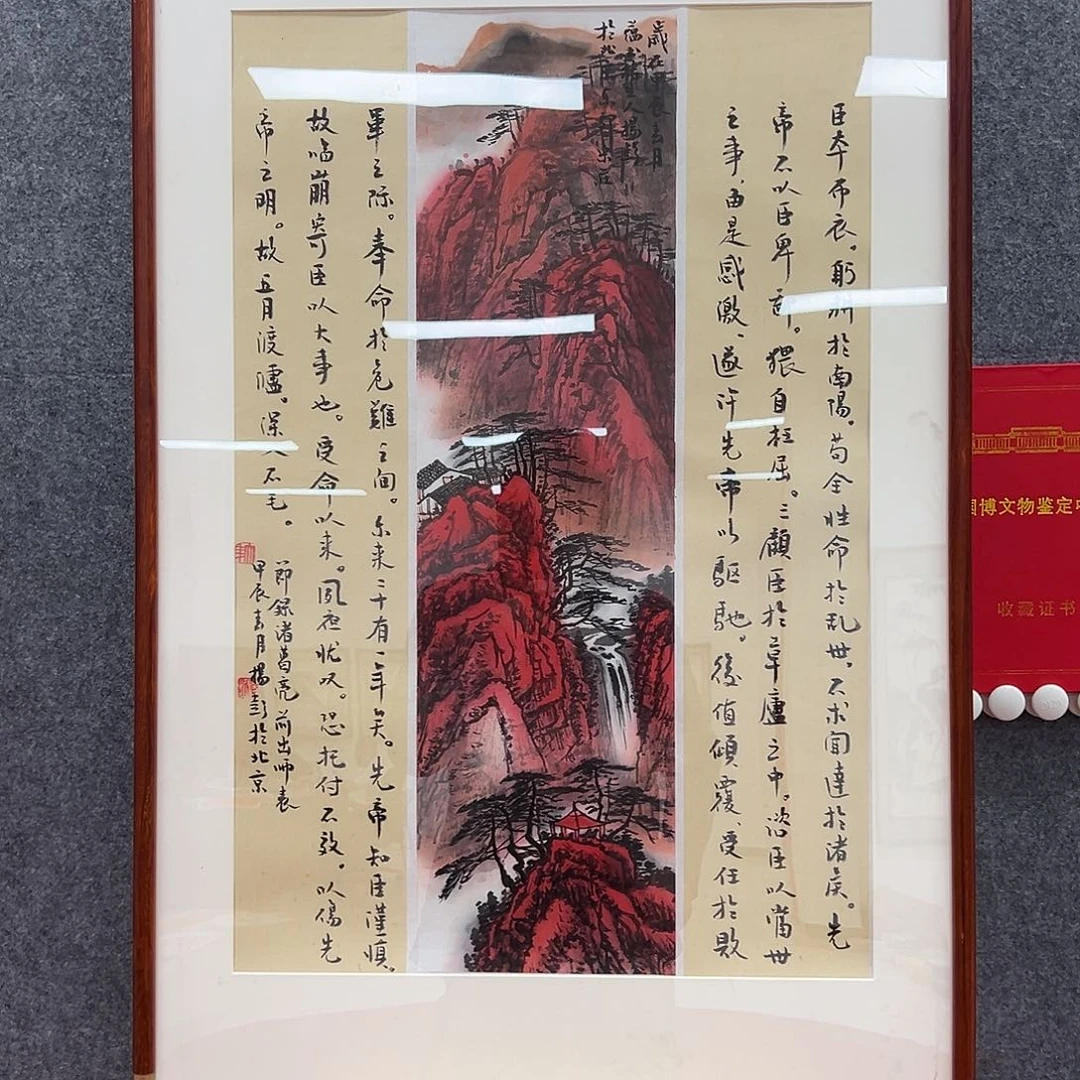 臣本布衣。躬耕於南陽。苟全性命於乱世、不求闻達於诸侯。先
帝不以臣卑鄙。猥自枉屈。三顧臣於草廬之中。諮臣以當世
之事、由是感激、遂许先帝以驅馳。後值傾覆、受任於敗
歲在
於北
軍之际。奉命於危難之间。尔来二十有一年矣。先帝知臣谨慎。
故临崩寄臣以大事也。受命以来。夙夜忧叹。恐托付不效。以傷先
帝之明。故五月渡瀘。深入不毛。
節錄诸葛亮前出师表
甲辰春月楊彭於北京
国博文物鉴定
收藏证书